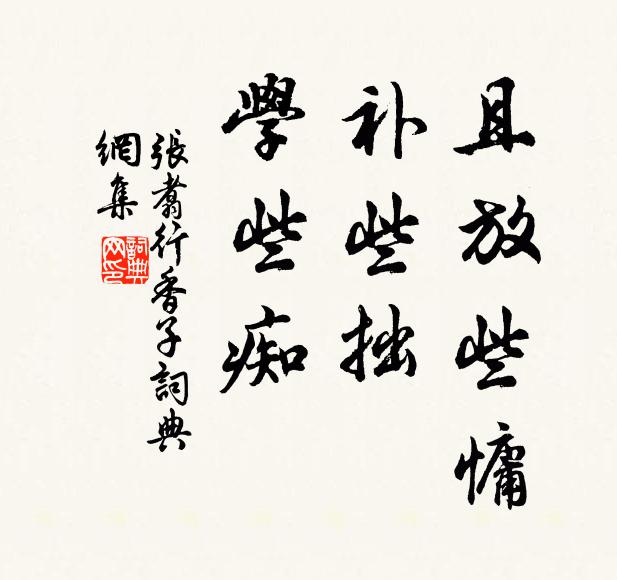 且放些慵
补些拙
學些痴
張翥行香子詞典
網集
詞典
网印